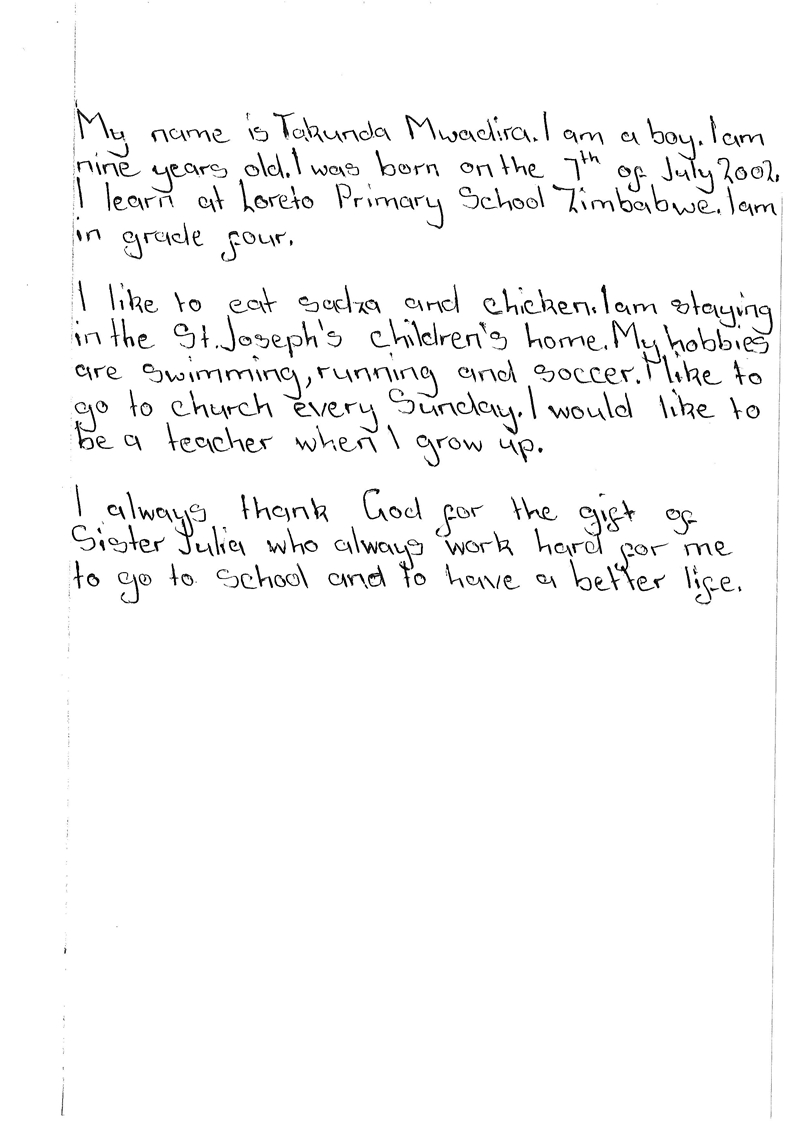 My name is Takunda Mwadira. I am a boy. I am
nine years old. I was born on the 7th of July 2002.
I learn at Loreto Primary School Zimbabwe. I am
in grade four.
I like to eat sadza and chicken. I am staying
in the St. Joseph's children's home. My hobbies
are swimming, running and soccer. I like to
go to church every Sunday. I would like to
be a teacher when I grow up.
I always thank God for the gift of
Sister Julia who always work hard for me
to go to school and to have a better life.